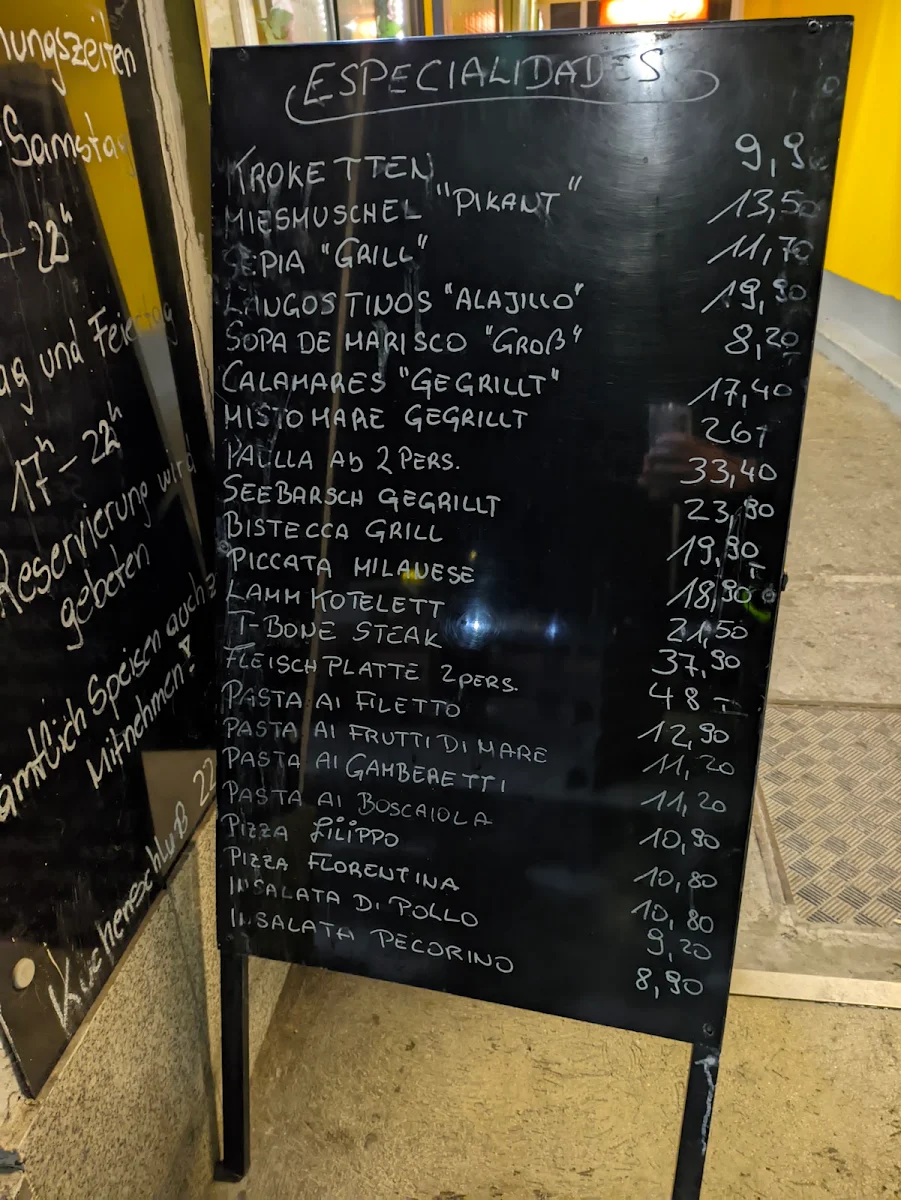 nungszeiten
Samsta
- 22h
ag und Feiertag
17h - 22h
Reservierung wird
gebeten
ämtlich Speisen auch z
Mitnehmen!
Küchenschluß 22
ESPECIALIDADES
KROKETTEN 9,9
MIESMUSCHEL "PIKANT" 13,50
SEPIA "GRILL" 11,70
LANGOSTINOS "ALAJILLO" 19,90
SOPA DE MARISCO "GROß" 8,20
CALAMARES "GEGRILLT" 17,40
MISTO MARE GEGRILLT 26,-
PAELLA Ab 2 PERS. 33,40
SEEBARSCH GEGRILLT 23,90
BISTECCA GRILL 19,90
PICCATA MILANESE 18,90
LAMM KOTELETT 21,50
T-BONE STEAK 37,90
FLEISCHPLATTE 2 PERS. 48,-
PASTA AI FILETTO 12,90
PASTA AI FRUTTI DI MARE 11,20
PASTA AI GAMBERETTI 11,20
PASTA AI BOSCAIOLA 10,90
PIZZA FILIPPO 10,80
PIZZA FLORENTINA 10,80
INSALATA DI POLLO 9,20
INSALATA PECORINO 8,90